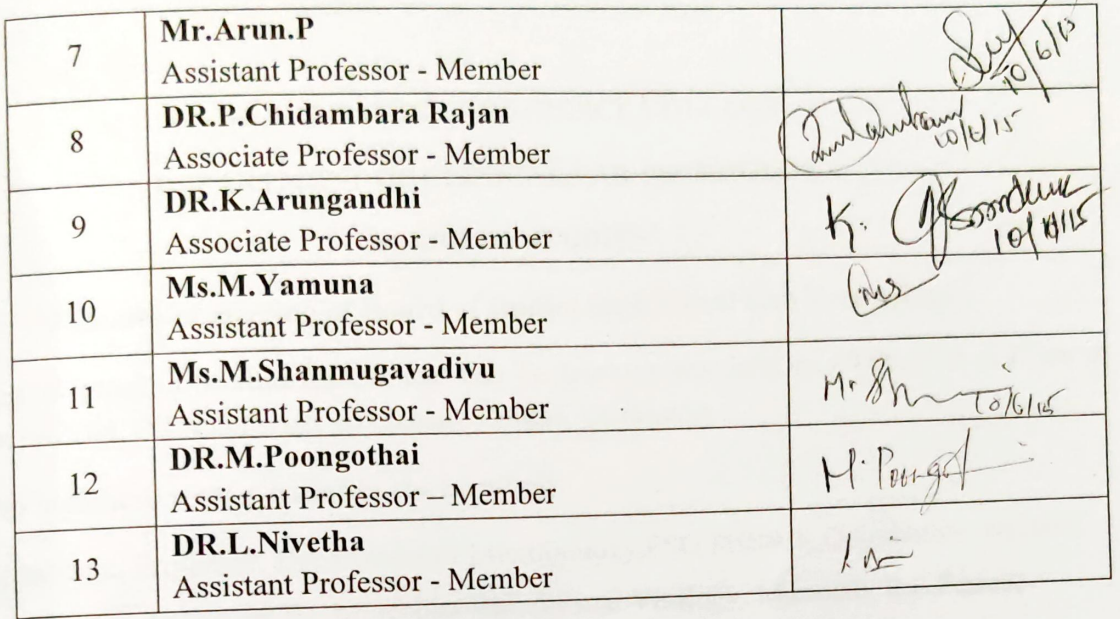 7
Mr.Arun.P
Assistant Professor - Member
10/6/15
8
DR.P.Chidambara Rajan
Associate Professor - Member
10/6/15
9
DR.K.Arungandhi
Associate Professor - Member
K.
10
Ms.M.Yamuna
Assistant Professor - Member
11
Ms.M.Shanmugavadivu
Assistant Professor - Member
10/6/15
12
DR.M.Poongothai
Assistant Professor – Member
M. Poongot
13
DR.L.Nivetha
Assistant Professor - Member